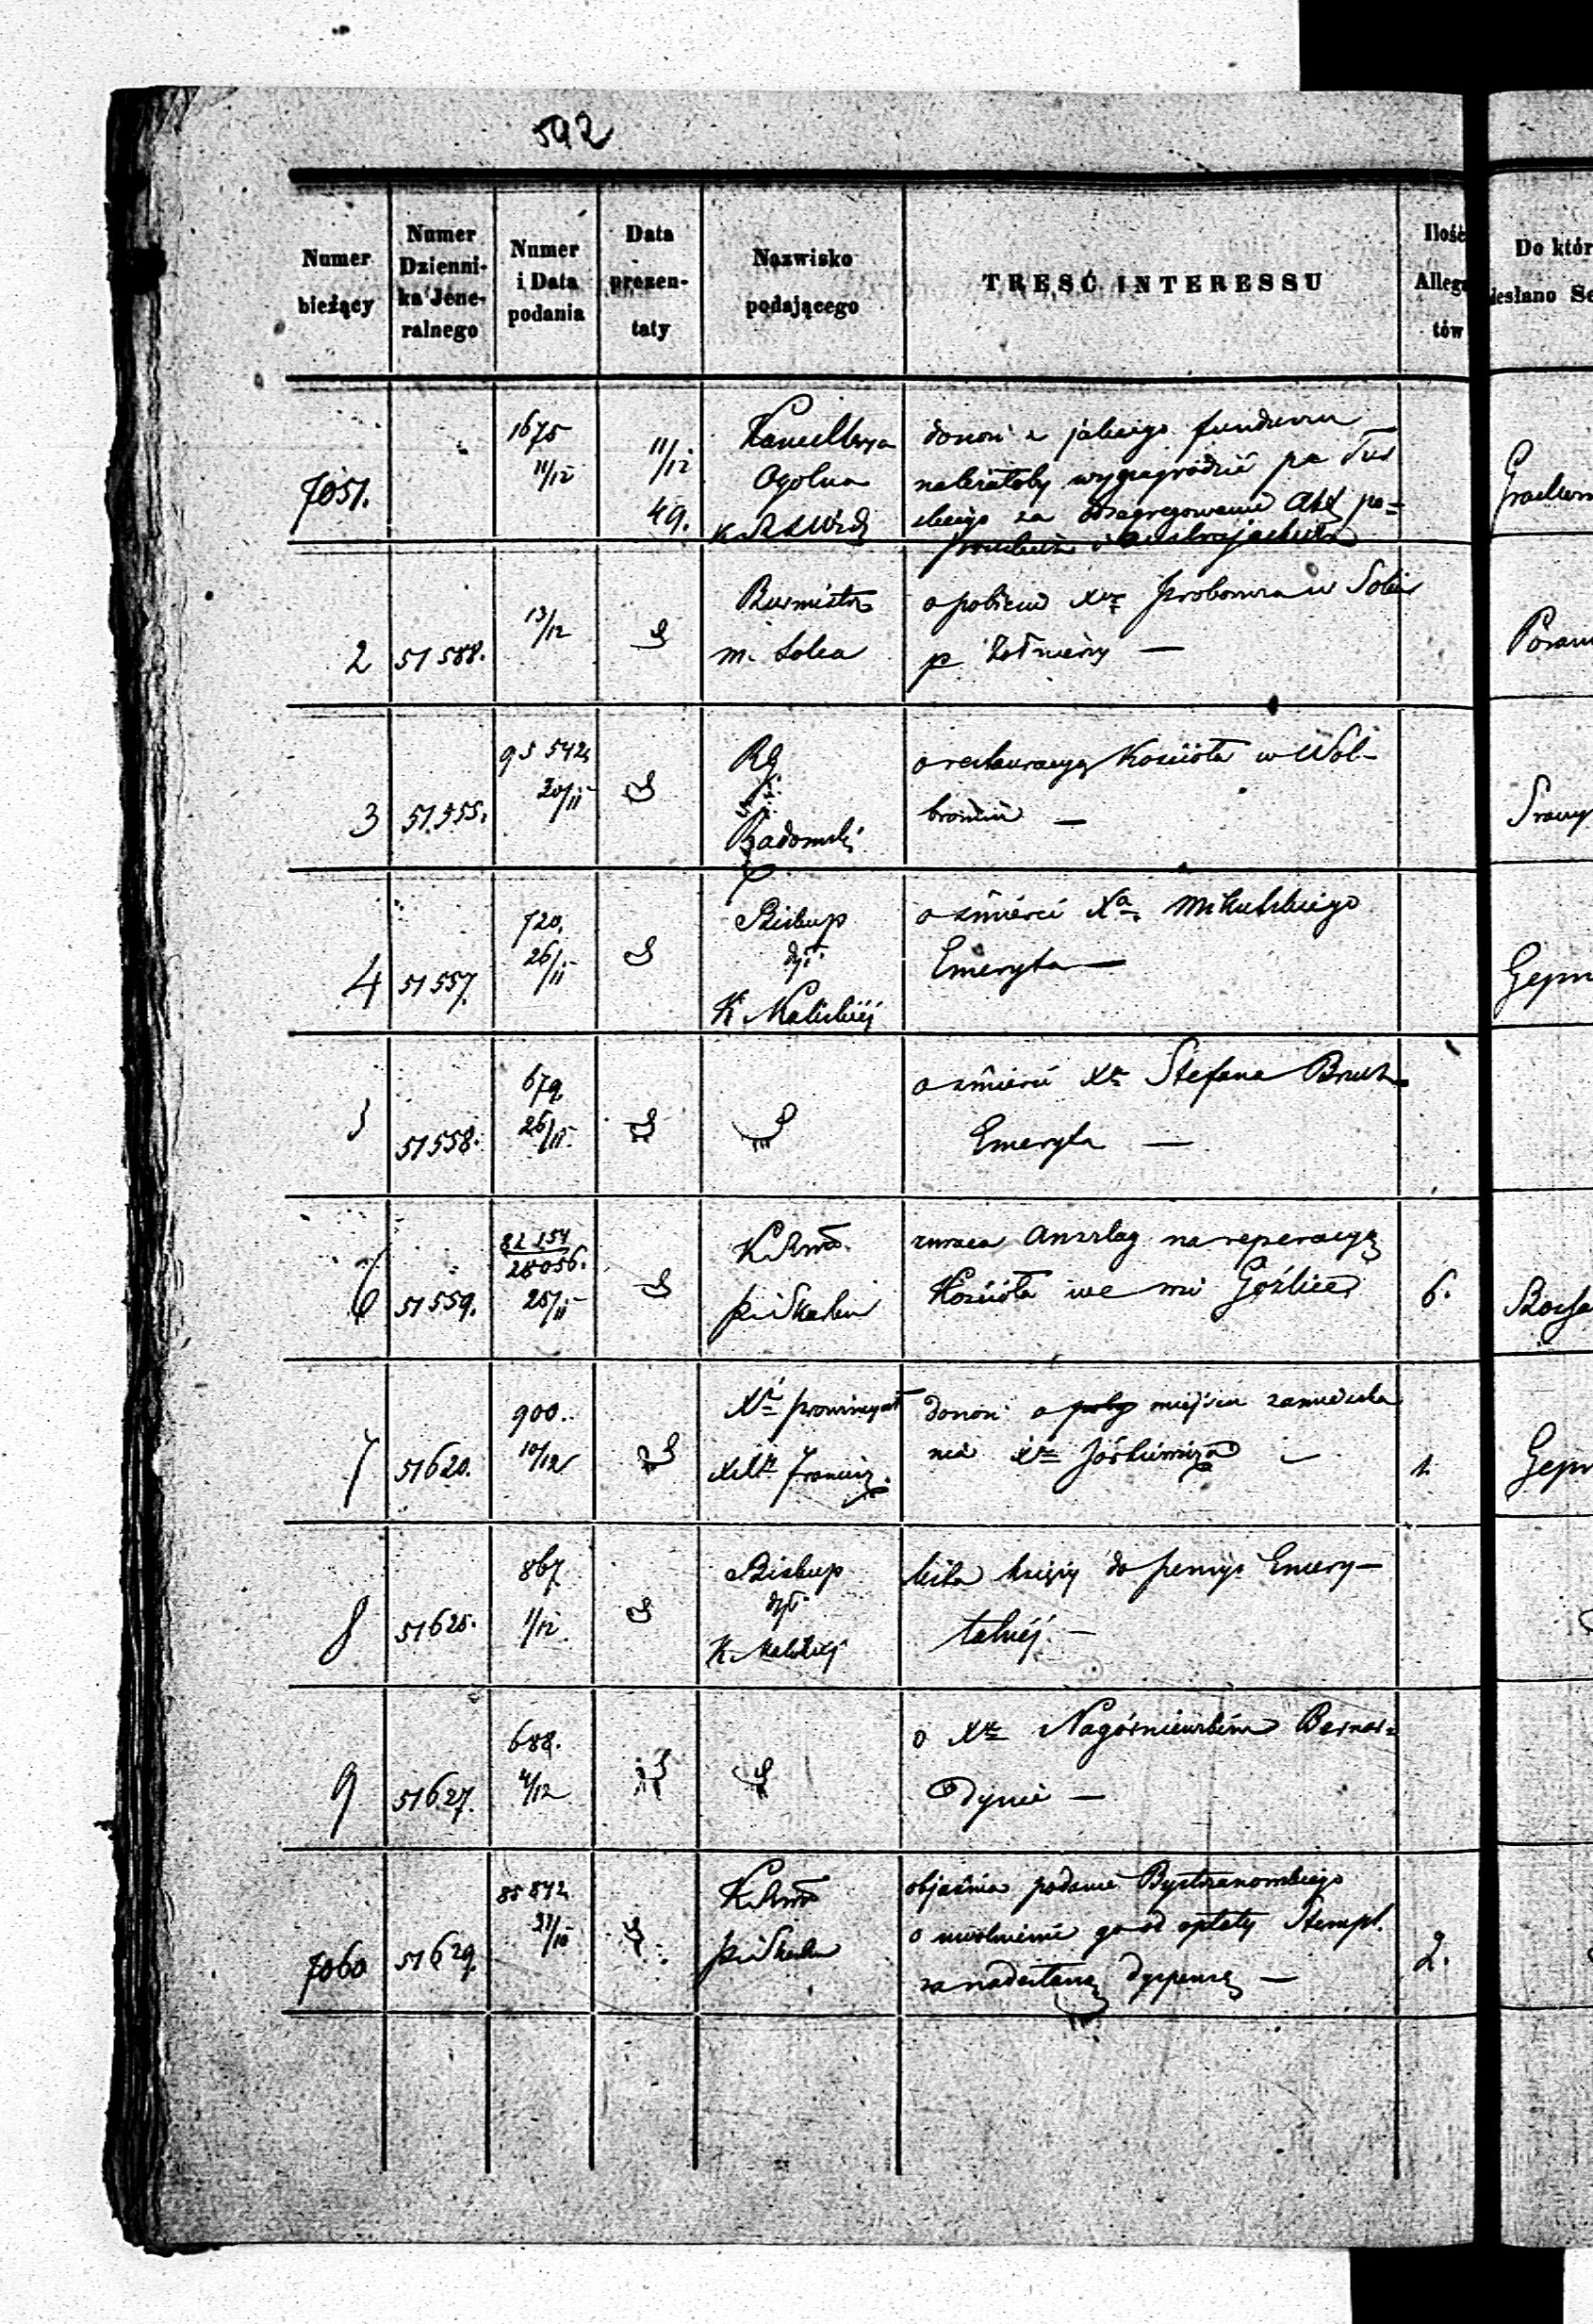 592
Numer bieżący
Numer Dzienni- ka Jene- ralnego
Numer i Data podania
Data prezen- taty
Nazwisko podającego
TREŚĆ INTERESSU
Ilość Allega tów
Do któr
desłano Se
7051.
1675
11/12
11/12
49.
Kancellarya
Ogolna
donosi z jakiego funduszu
należałoby wynagrodzić
za
2
51588.
13/12
Burmistrz
m. Solca
o pobiciu Xa Proboszcza w Solcu
p Żołnierzy —
3
51555.
95542
20/11
RG
Radomski
o restauracyą Kościoła w Wol-
bromiu —
4
51557.
720.
26/11
Biskup
dyi.
K Kaliskiéj
o śmierci Xa Mikulskiego
Emeryta —
5
51558.
679.
26/11
o śmierci Xa Stefana
Emeryta —
6
51559.
25/11
zwraca Anszlag na reperacyą
Kościoła we wsi Goźlice
6.
7
51620.
900.
10/12
Xa prowincyał
donosi o miejscu zamieszka
nia Xa
1.
8
51625.
867
1/12
Biskup
dyi.
K. Kaliskiéj
lista księży do pensyi Emery-
talnéj. —
9
51627.
688.
4/12
o Xu Nagórniewskim Bernar-
dynie —
7060
51629.
85872
objaśnia podanie Bystrzanowskiego
o uwolnienie go od opłaty Stempl.
za nadesłaną dyspensę —
2.